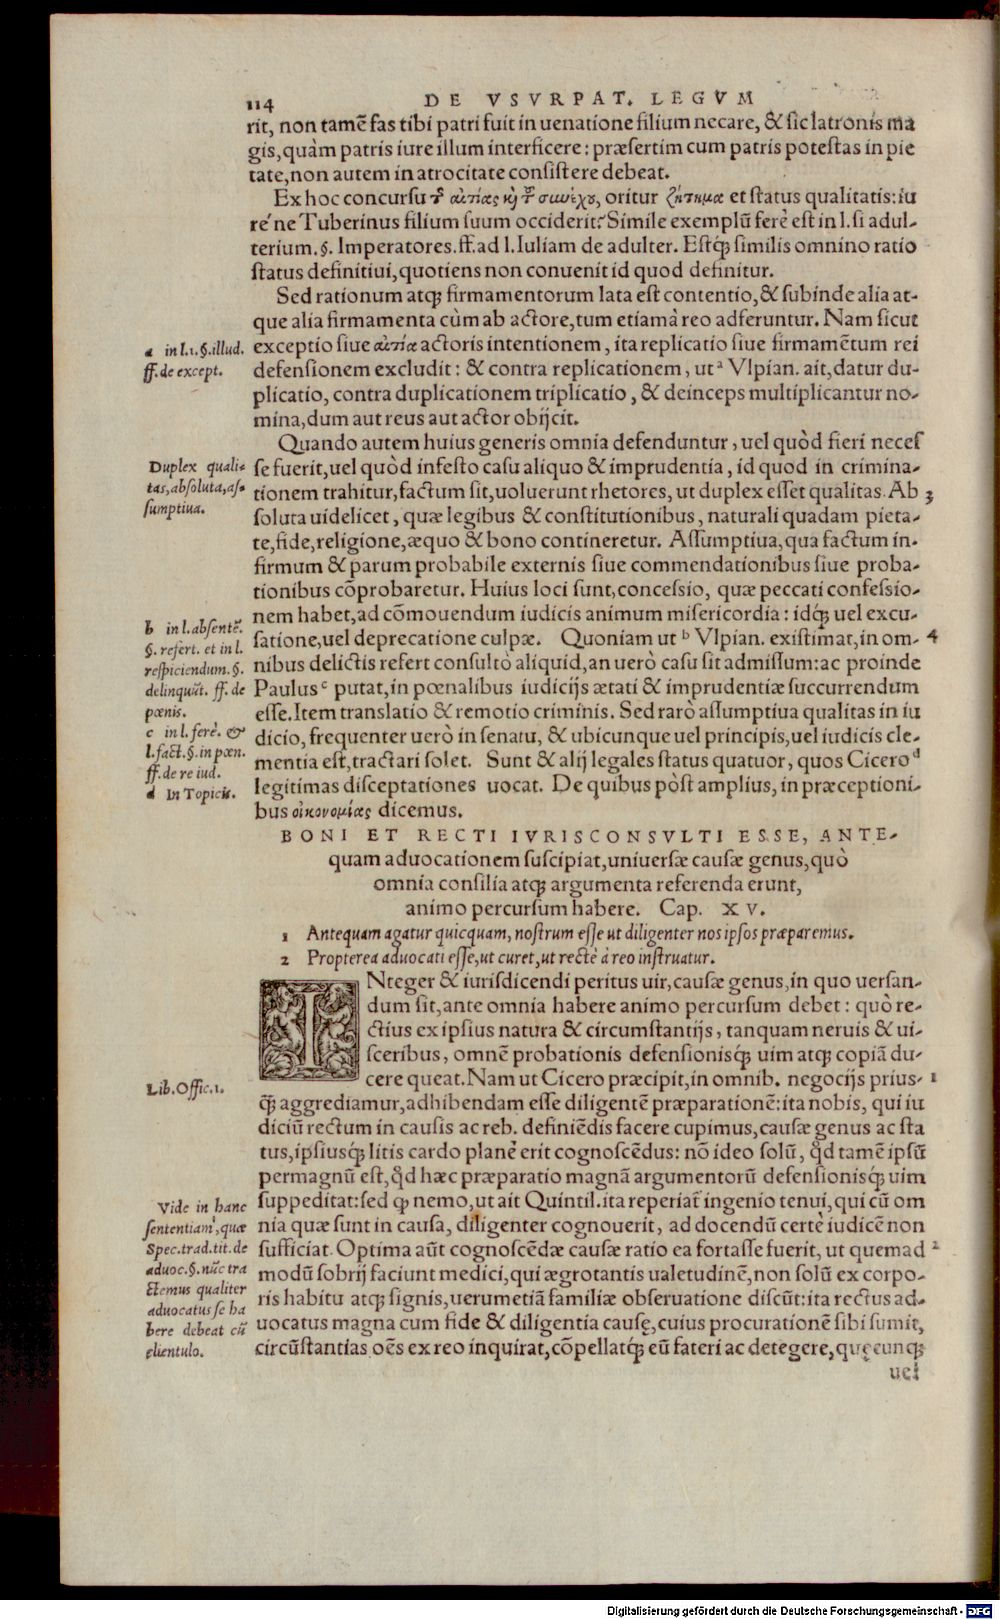 114 DE VSVRPAT. LEGVM
rit, non tamē fas tibi patri fuit in uenatione filium necare, & sic latronis ma
gis, quàm patris iure illum interficere: præsertim cum patris potestas in pie
tate, non autem in atrocitate consistere debeat.
Ex hoc concursu τ͂ αἰτίας κ̀ τ͂ συνέχο, oritur ζήτημα et status qualitatis: iu
re´ne Tuberinus filium suum occiderit? Simile exemplū ferè est in l. si adul-
terium. §. Imperatores. ff. ad l. Iuliam de adulter. Estq́; similis omnino ratio
status definitiui, quotiens non conuenit id quod definitur.
Sed rationum atq; firmamentorum lata est contentio, & subinde alia at-
que alia firmamenta cùm ab actore, tum etiam à reo adferuntur. Nam sicut
exceptio siue αἰτία actoris intentionem, ita replicatio siue firmamētum rei
defensionem excludit: & contra replicationem, ut ᵃ Vlpian. ait, datur du-
plicatio, contra duplicationem triplicatio, & deinceps multiplicantur no-
mina, dum aut reus aut actor obijcit.
a in l.1. §. illud.
ff. de except.
Quando autem huius generis omnia defenduntur, uel quòd fieri neces
se fuerit, uel quòd infesto casu aliquo & imprudentia, id quod in crimina-
tionem trahitur, factum sit, uoluerunt rhetores, ut duplex esset qualitas. Ab 3
soluta uidelicet, quæ legibus & constitutionibus, naturali quadam pieta-
te, fide, religione, æquo & bono contineretur. Assumptiua, qua factum in-
firmum & parum probabile externis siue commendationibus siue proba-
tionibus cōprobaretur. Huius loci sunt, concessio, quæ peccati confessio-
nem habet, ad cōmouendum iudicis animum misericordia: idq́; uel excu-
satione, uel deprecatione culpæ. Quoniam ut ᵇ Vlpian. existimat, in om- 4
nibus delictis refert consultò aliquid, an uerò casu sit admissum: ac proinde
Paulus ᶜ putat, in pœnalibus iudicijs ætati & imprudentiæ succurrendum
esse. Item translatio & remotio criminis. Sed rarò assumptiua qualitas in iu
dicio, frequenter uerò in senatu, & ubicunque uel principis, uel iudicis cle-
mentia est, tractari solet. Sunt & alij legales status quatuor, quos Cicero ᵈ
legitimas disceptationes uocat. De quibus pòst amplius, in præceptioni-
bus οἰκονομίας dicemus.
Duplex quali-
tas, absoluta, as-
sumptiua.
b in l. absentē.
§. refert. et in l.
respiciendum. §.
delinquūt. ff. de
pœnis.
c in l. ferè. &
l. fact. §. in pœn.
ff. de re iud.
d In Topicis.
BONI ET RECTI IVRISCONSVLTI ESSE, ANTE-
quam aduocationem suscipiat, uniuersæ causæ genus, quò
omnia consilia atq; argumenta referenda erunt,
animo percursum habere. Cap. XV.
1 Antequam agatur quicquam, nostrum esse ut diligenter nos ipsos præparemus.
2 Propterea aduocati esse, ut curet, ut rectè à reo instruatur.
INteger & iurisdicendi peritus uir, causæ genus, in quo uersan-
dum sit, ante omnia habere animo percursum debet: quò re-
ctius ex ipsius natura & circumstantijs, tanquam neruis & ui-
sceribus, omnē probationis defensionisq́; uim atq; copiā du-
cere queat. Nam ut Cicero præcipit, in omnib. negocijs prius- 1
q̃; aggrediamur, adhibendam esse diligentē præparationē: ita nobis, qui iu
diciū rectum in causis ac reb. definiēdis facere cupimus, causæ genus ac sta
tus, ipsiusq́; litis cardo planè erit cognoscēdus: nō ideo solū, q̇d tamē ipsū
permagnū est, q̇d hæc præparatio magnā argumentorū defensionisq́; uim
suppeditat: sed ꝙ nemo, ut ait Quintil. ita reperiat᷑ ingenio tenui, qui cū om
nia quæ sunt in causa, diligenter cognouerit, ad docendū certè iudicē non
sufficiat. Optima aūt cognoscēdæ causæ ratio ea fortasse fuerit, ut quemad 2
modū sobrij faciunt medici, qui ægrotantis ualetudinē, non solū ex corpo-
ris habitu atq; signis, uerumetiā familiæ obseruatione discūt: ita rectus ad-
uocatus magna cum fide & diligentia causę, cuius procurationē sibi sumit,
circūstantias oēs ex reo inquirat, cōpellatq́; eū fateri ac detegere, quęcunq;
uel
Lib. Offic. 1.
Vide in hanc
sententiam, quæ
Spec. trad. tit. de
aduoc. §. nūc tra
ctemus qualiter
aduocatus se ha
bere debeat cū
clientulo.
Digitalisierung gefördert durch die Deutsche Forschungsgemeinschaft - DFG